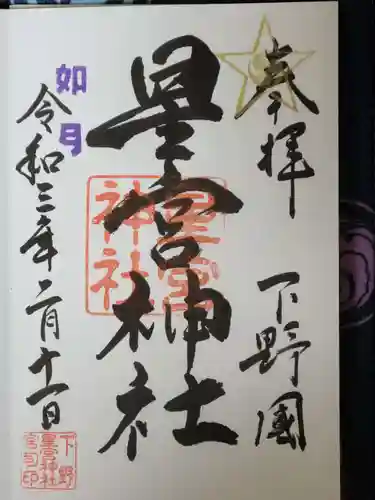 奉拝
下野國
星宮神社
星宮神社
如月
令和三年二月十一日
下野
星宮神社
宮司印